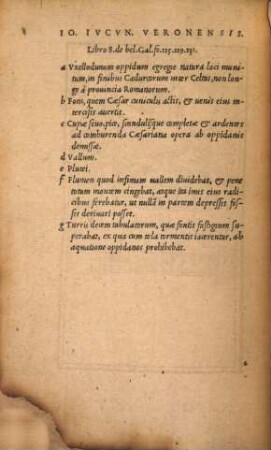 IO. IVCVN. VERONENSIS.
Libro 8. de bel. Gal. fo. 115. 119. 131.
a Vxellodunum oppidum egregie natura loci muni
tum, in finibus Cadurcorum inter Celtas, non lon-
ge à prouincia Romanorum.
b Fons, quem Cæsar cuniculis actis, & uenis eius
intercisis auertit.
c Cupæ seuo, pice, scandulisque completæ & ardentes
ad comburenda Cæsariana opera ab oppidanis
demissæ.
d Vallum.
e Plutei.
f Flumen quod infimam uallem diuidebat, & pene
totum montem cingebat, atque ita imis eius radi
cibus ferebatur, ut nullã in partem depressis fos-
sis deriuari posset.
g Turris decem tabulatorum, quæ fontis fastigium su
perabat, ex qua cum tela tormentis iacerentur, ab
aquatione oppidanos prohibebat.